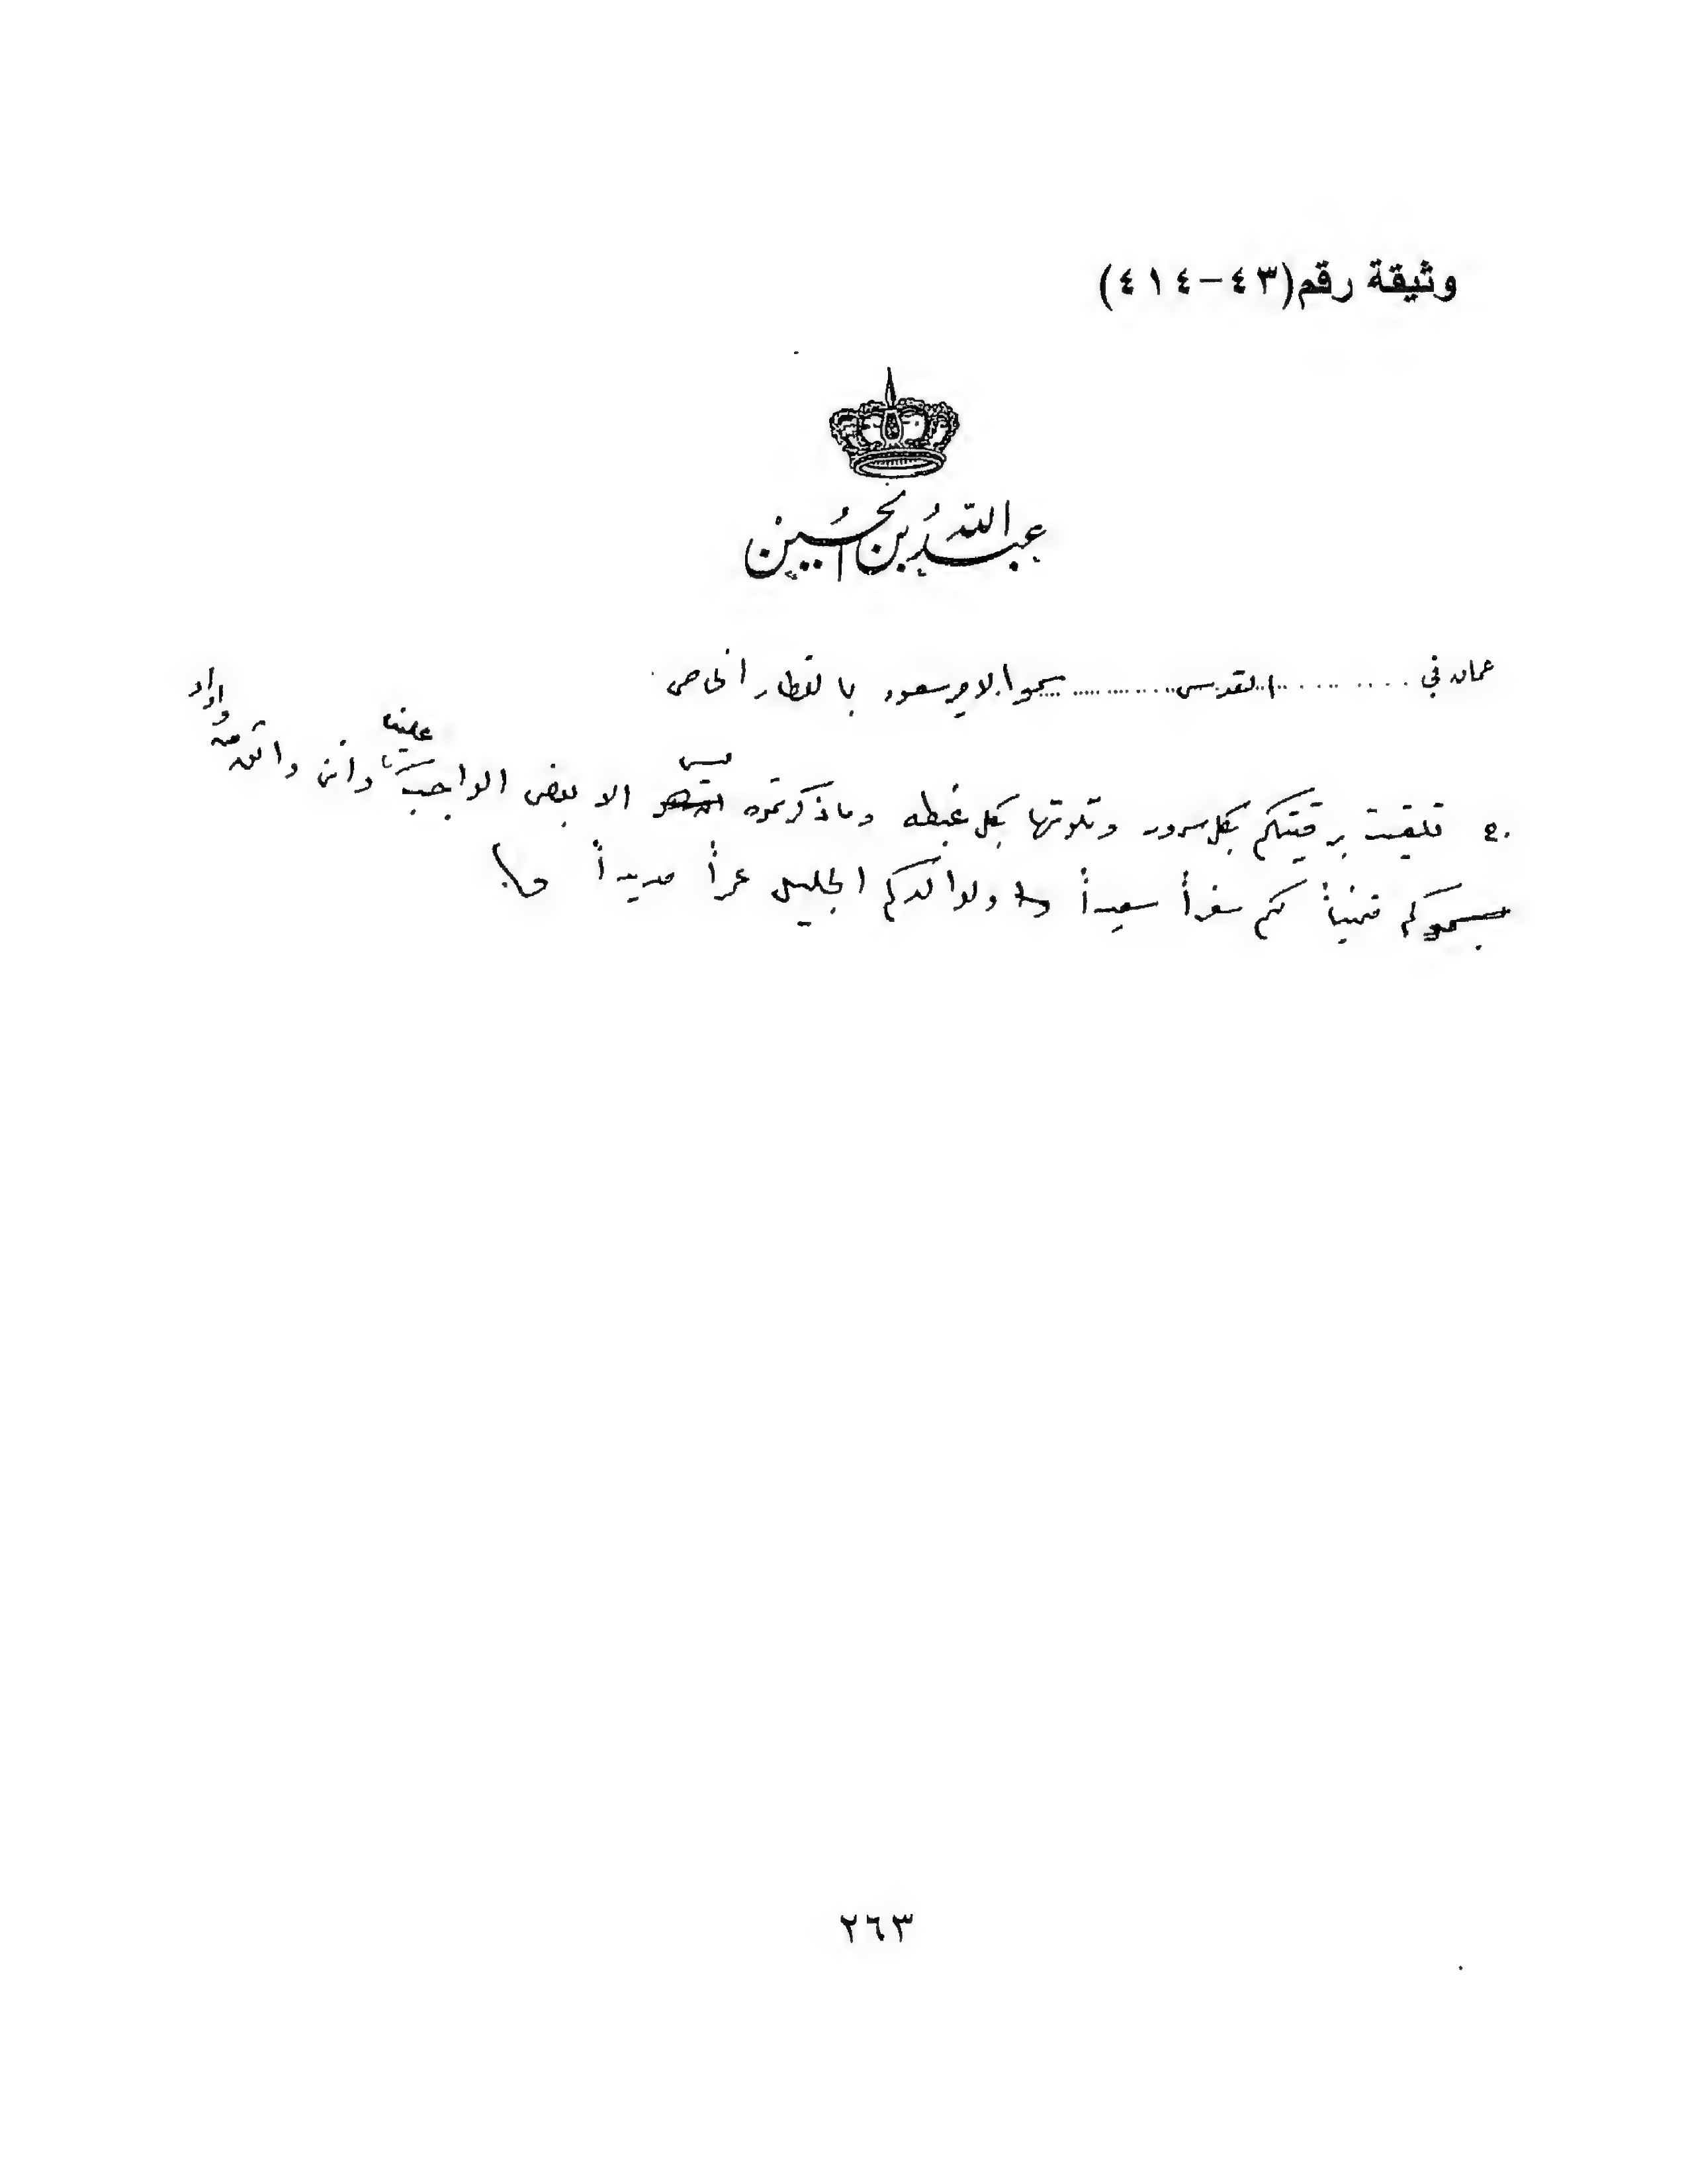 وثيقة رقم(٤٣-٤١٤)
عبد الله بن الحسين
عمان في القدس سمو الامير سعود بالقطار الخاص
ج. تلقيت برقيتكم بكل سرور وتلوتها بكل غبطه وما ذكرتموه ليس الا بعض الواجب علينا وانني واثق من وداد
سموكم متمنياً لكم سفراً سعيداً ولوالدكم الجليل عمراً مديداً
٢٦٣